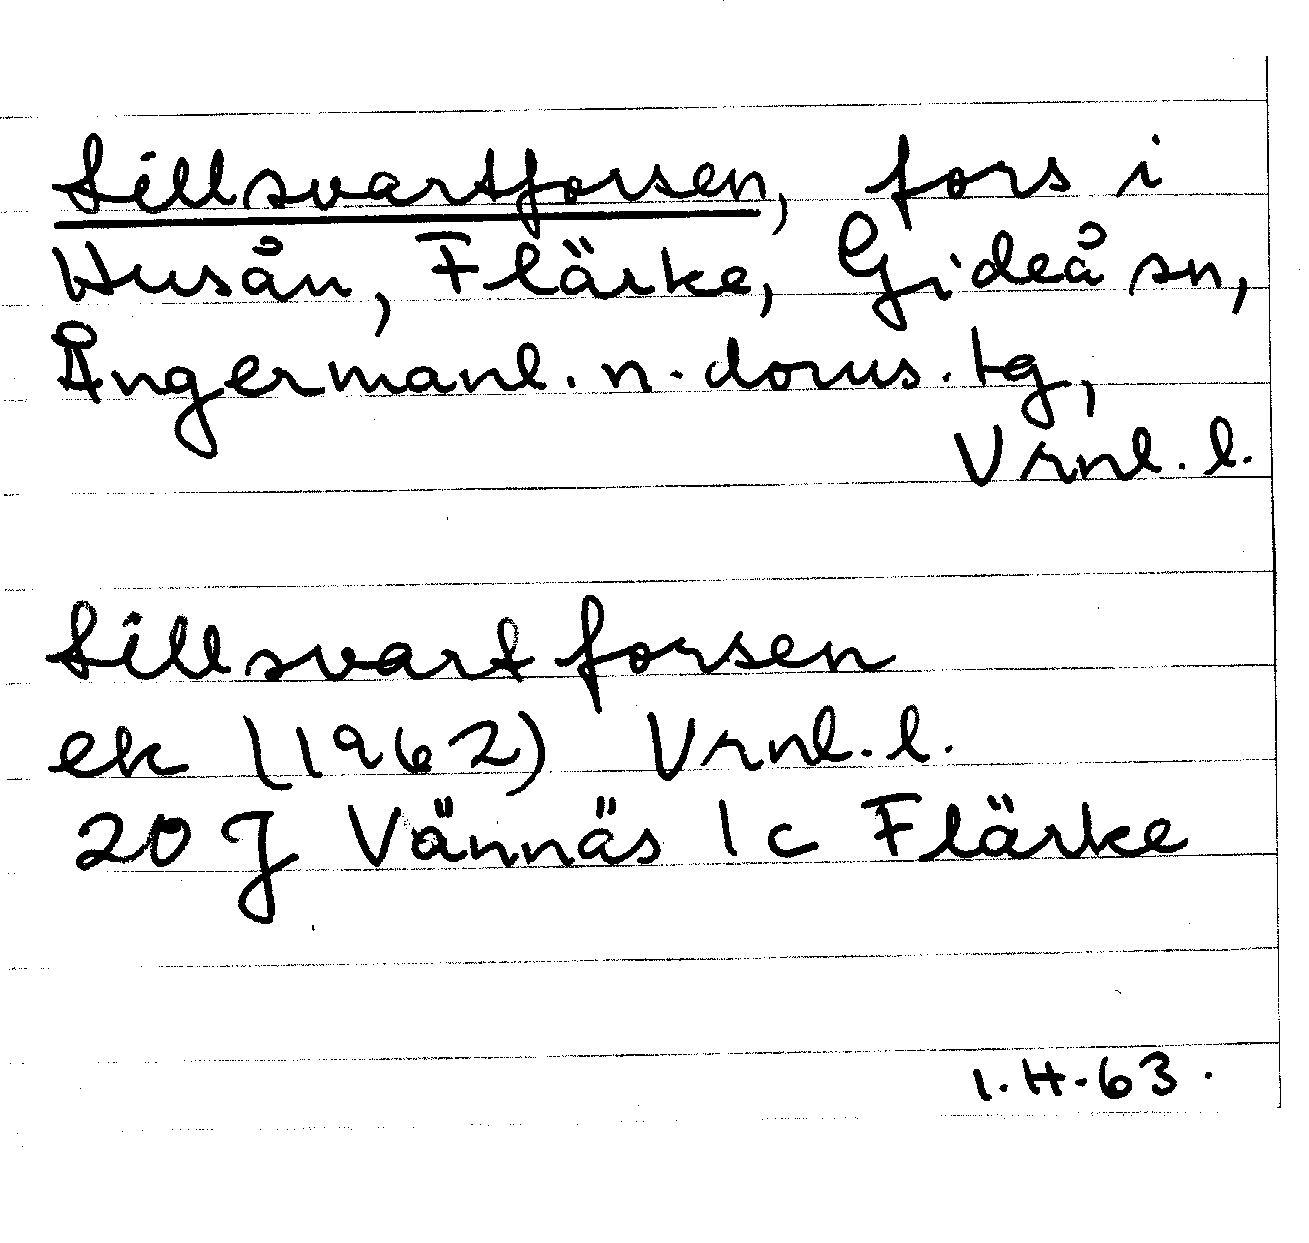 Lillsvartforsen, fors i
Husån, Flärke, Gideå sn,
Ångermanl. n. doms. tg,
Vrnl. l.
Lillsvartforsen
ek (1962) Vrnl. l.
20 J Vännäs 1 c Flärke
I. H. 63.